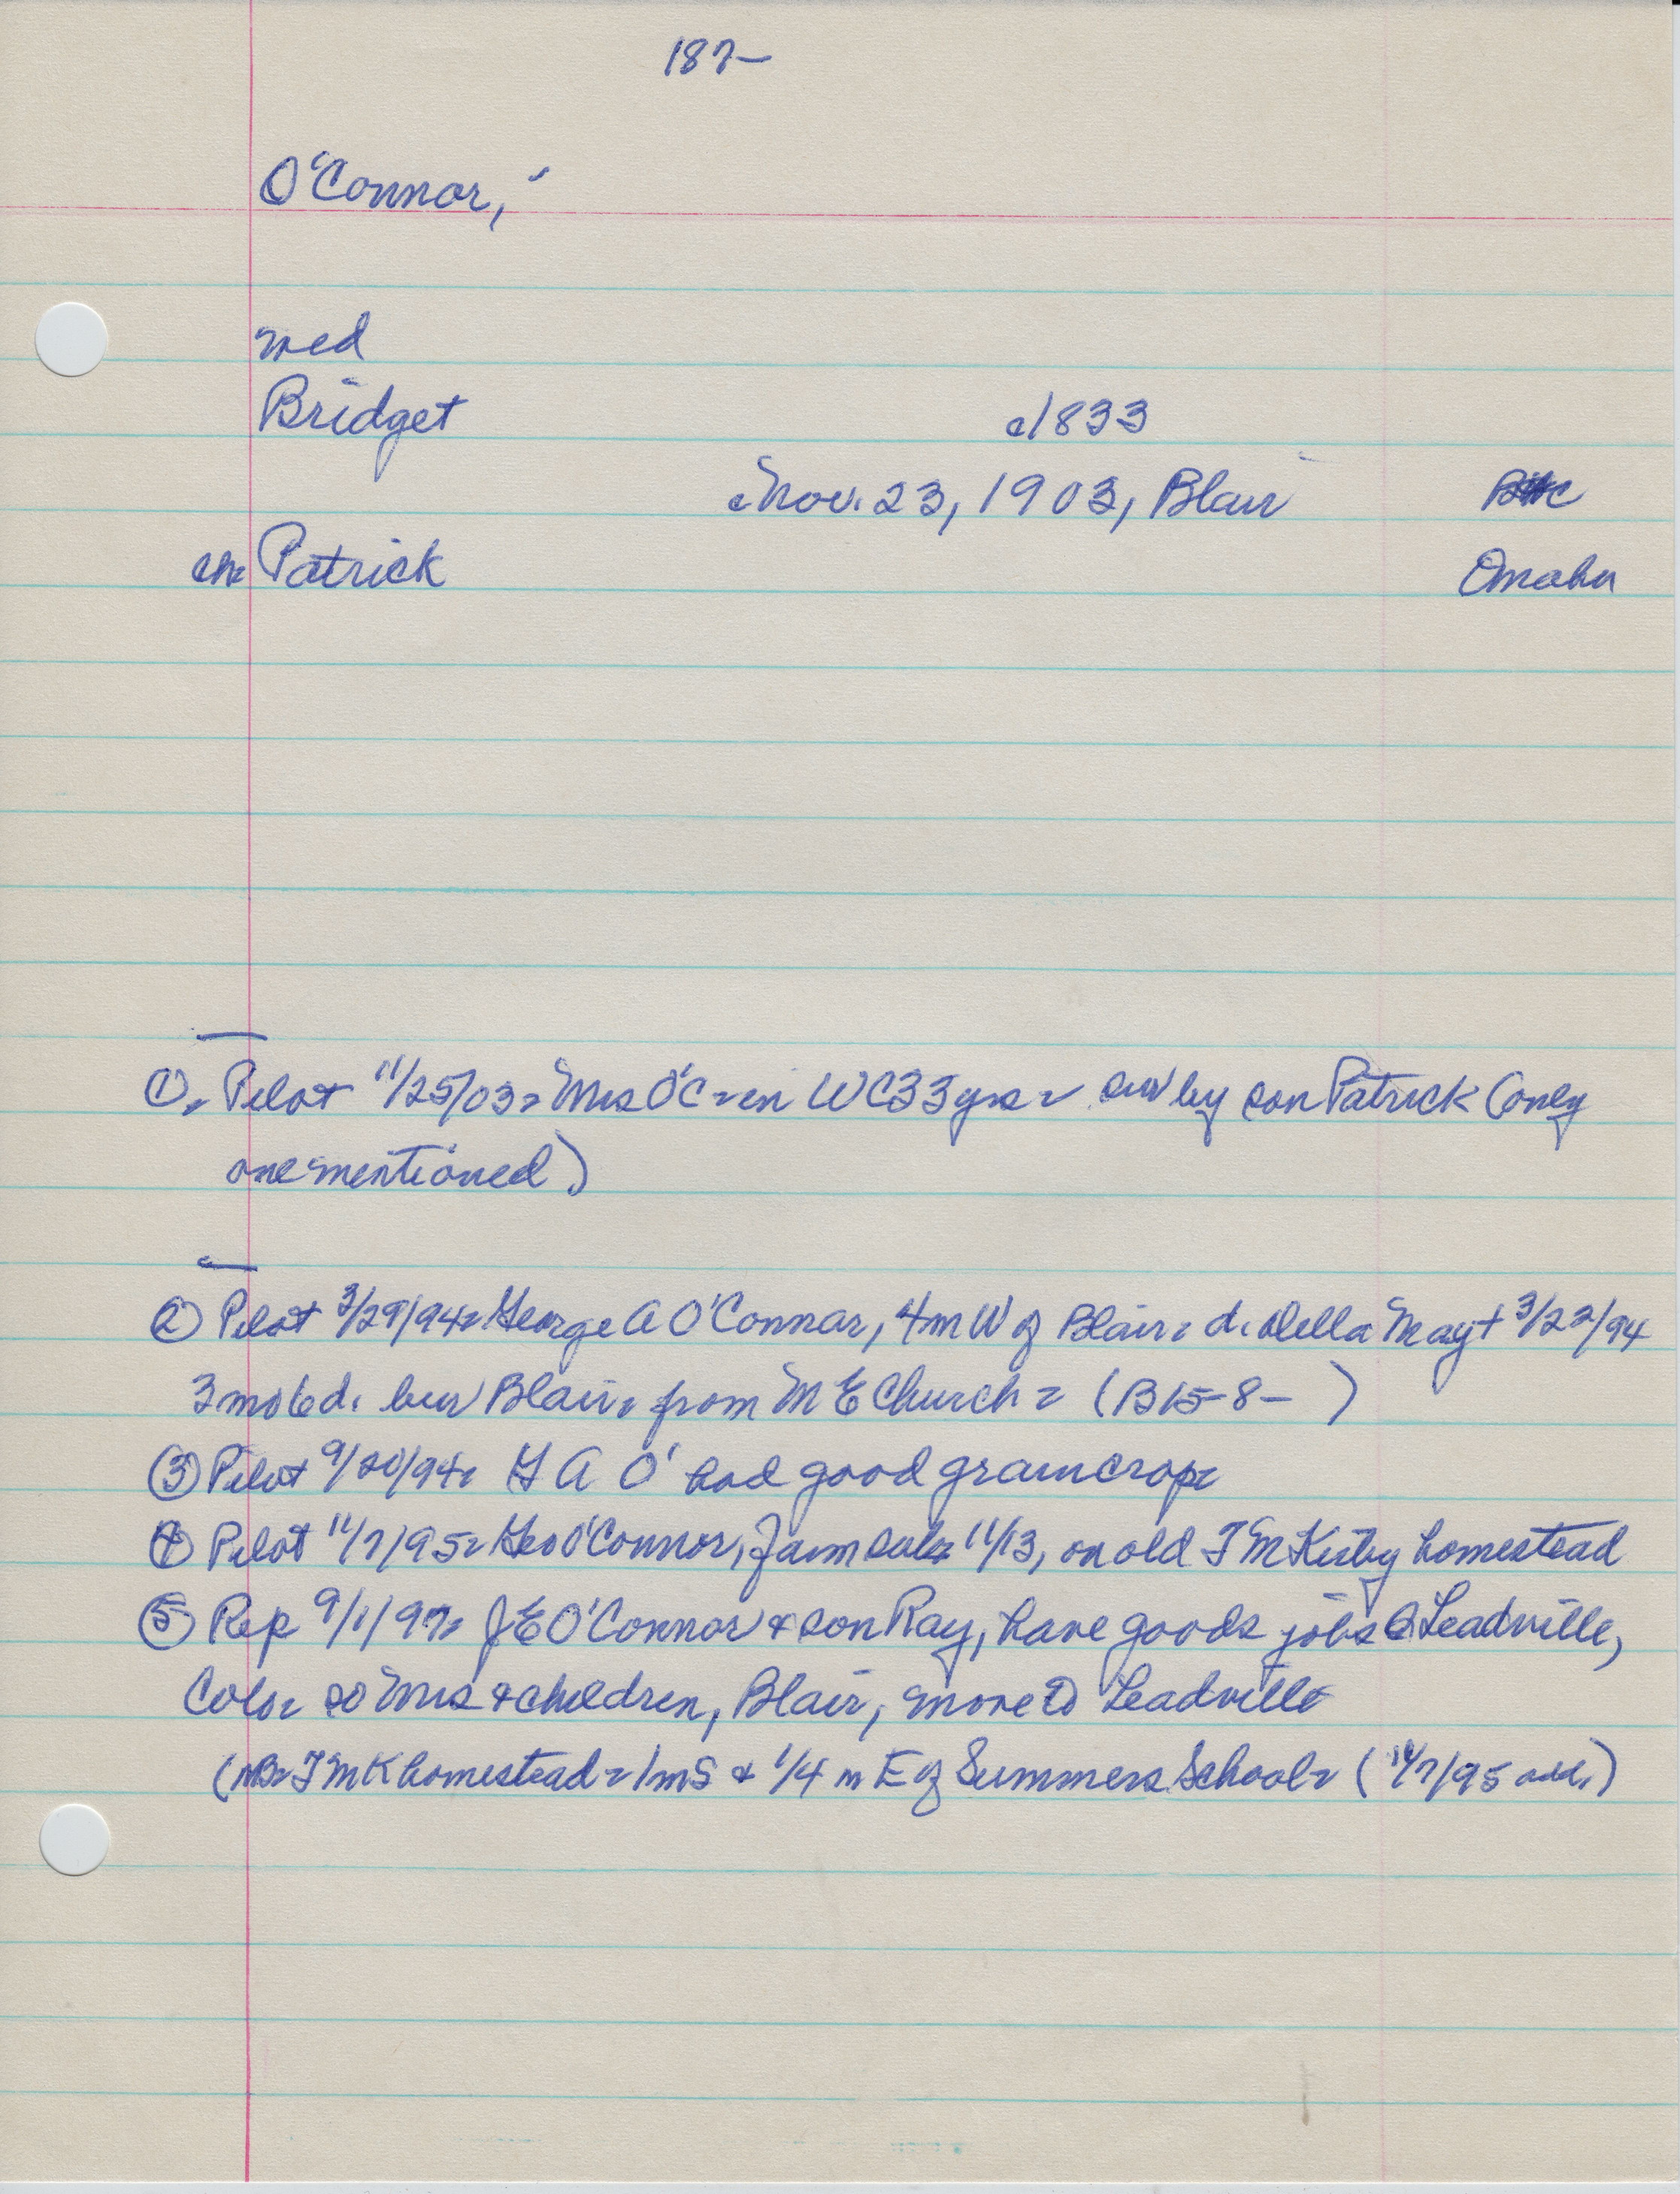 187-
O'Connor,
med
Bridget c1833
Nov. 23, 1903, Blair
ch- Patrick Omaha
①- Pilot 11/25/03- Mrs O'C- in WC 33 yrs- sur by son Patrick (only
one mentioned)
② Pilot 3/29/94- George A O'Connor, 4m W of Blair- d. Della May + 3/22/94
3 mo 6 d. bur Blair- from M E Church- (B15-8- )
③ Pilot 9/20/94- G A O' had good grain crop-
④ Pilot 11/7/95- Geo O'Connor, farm sale 11/13, on old T M Kirby homestead
⑤ Rep 9/1/97- J E O'Connor & son Ray, have goods jobs @ Leadville,
Colo- so Mrs & children, Blair, move to Leadville
(NB- T M K homestead- 1 m S & 1/4 m E of Summers School- (11/7/95 add.)